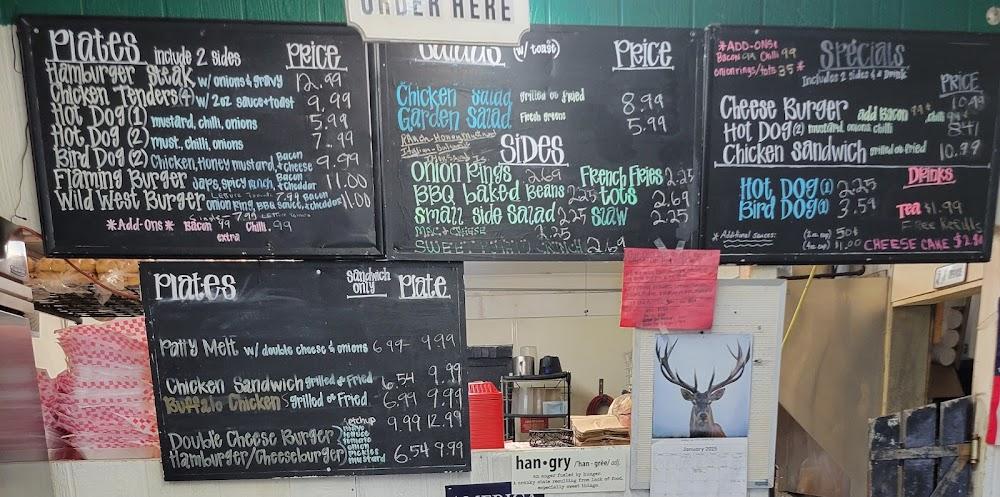 ORDER HERE
Plates include 2 sides Price
Hamburger Steak w/ onions & gravy 12.99
Chicken Tenders (4) w/ 2oz sauce + toast 9.99
Hot Dog (1) mustard, chilli, onions 5.99
Hot Dog (2) must., chilli, onions 7.99
Bird Dog (2) Chicken, Honey mustard, Bacon + cheese 9.99
Flaming Burger Japs, spicy ranch, Bacon + cheddar 11.00
Wild West Burger onion ring, BBQ sauce, cheddar, Bacon 11.00
*Add-Ons* Bacon 99 Chilli .99
extra
Salads (w/ toast) Price
Chicken Salad grilled or fried 8.99
Garden Salad Fresh greens 5.99
Ranch - Honey Mustard
Italian -
Sides
Onion Rings 2.69 French Fries 2.25
BBQ baked Beans 2.25 Tots 2.69
Small side Salad 2.25 Slaw 2.25
Mac & Cheese 2.25
2.69
*ADD-ONS
Bacon 99 Chilli 99
onion rings/tots 85 *
Specials
Includes 2 sides & a Drink
PRICE
Cheese Burger add Bacon 99¢, chilli 10.49
Hot Dog (2) mustard, onions, chilli 8.41
Chicken Sandwich grilled or fried 10.99
Hot Dog (1) 2.25
Bird Dog (1) 3.59
Drinks
Tea $1.99
Free Refills
*Additional sauces: (2oz cup) 50¢
(4oz cup) $1.00
CHEESE CAKE
Plates Sandwich only Plate
Patty Melt w/ double cheese & onions 6.99 9.99
Chicken Sandwich grilled or Fried 6.54 9.99
Buffalo Chicken grilled or Fried 6.99 9.99
Double Cheese Burger 9.99 12.99
Hamburger/Cheeseburger 6.54 9.99
ketchup
mayo
lettuce
tomato
onion
pickles
mustard
January 2025
han•gry /han-gree/ adj.
an anger fueled by hunger.
a cranky state resulting from lack of food.
especially sweet things.
AMERICA